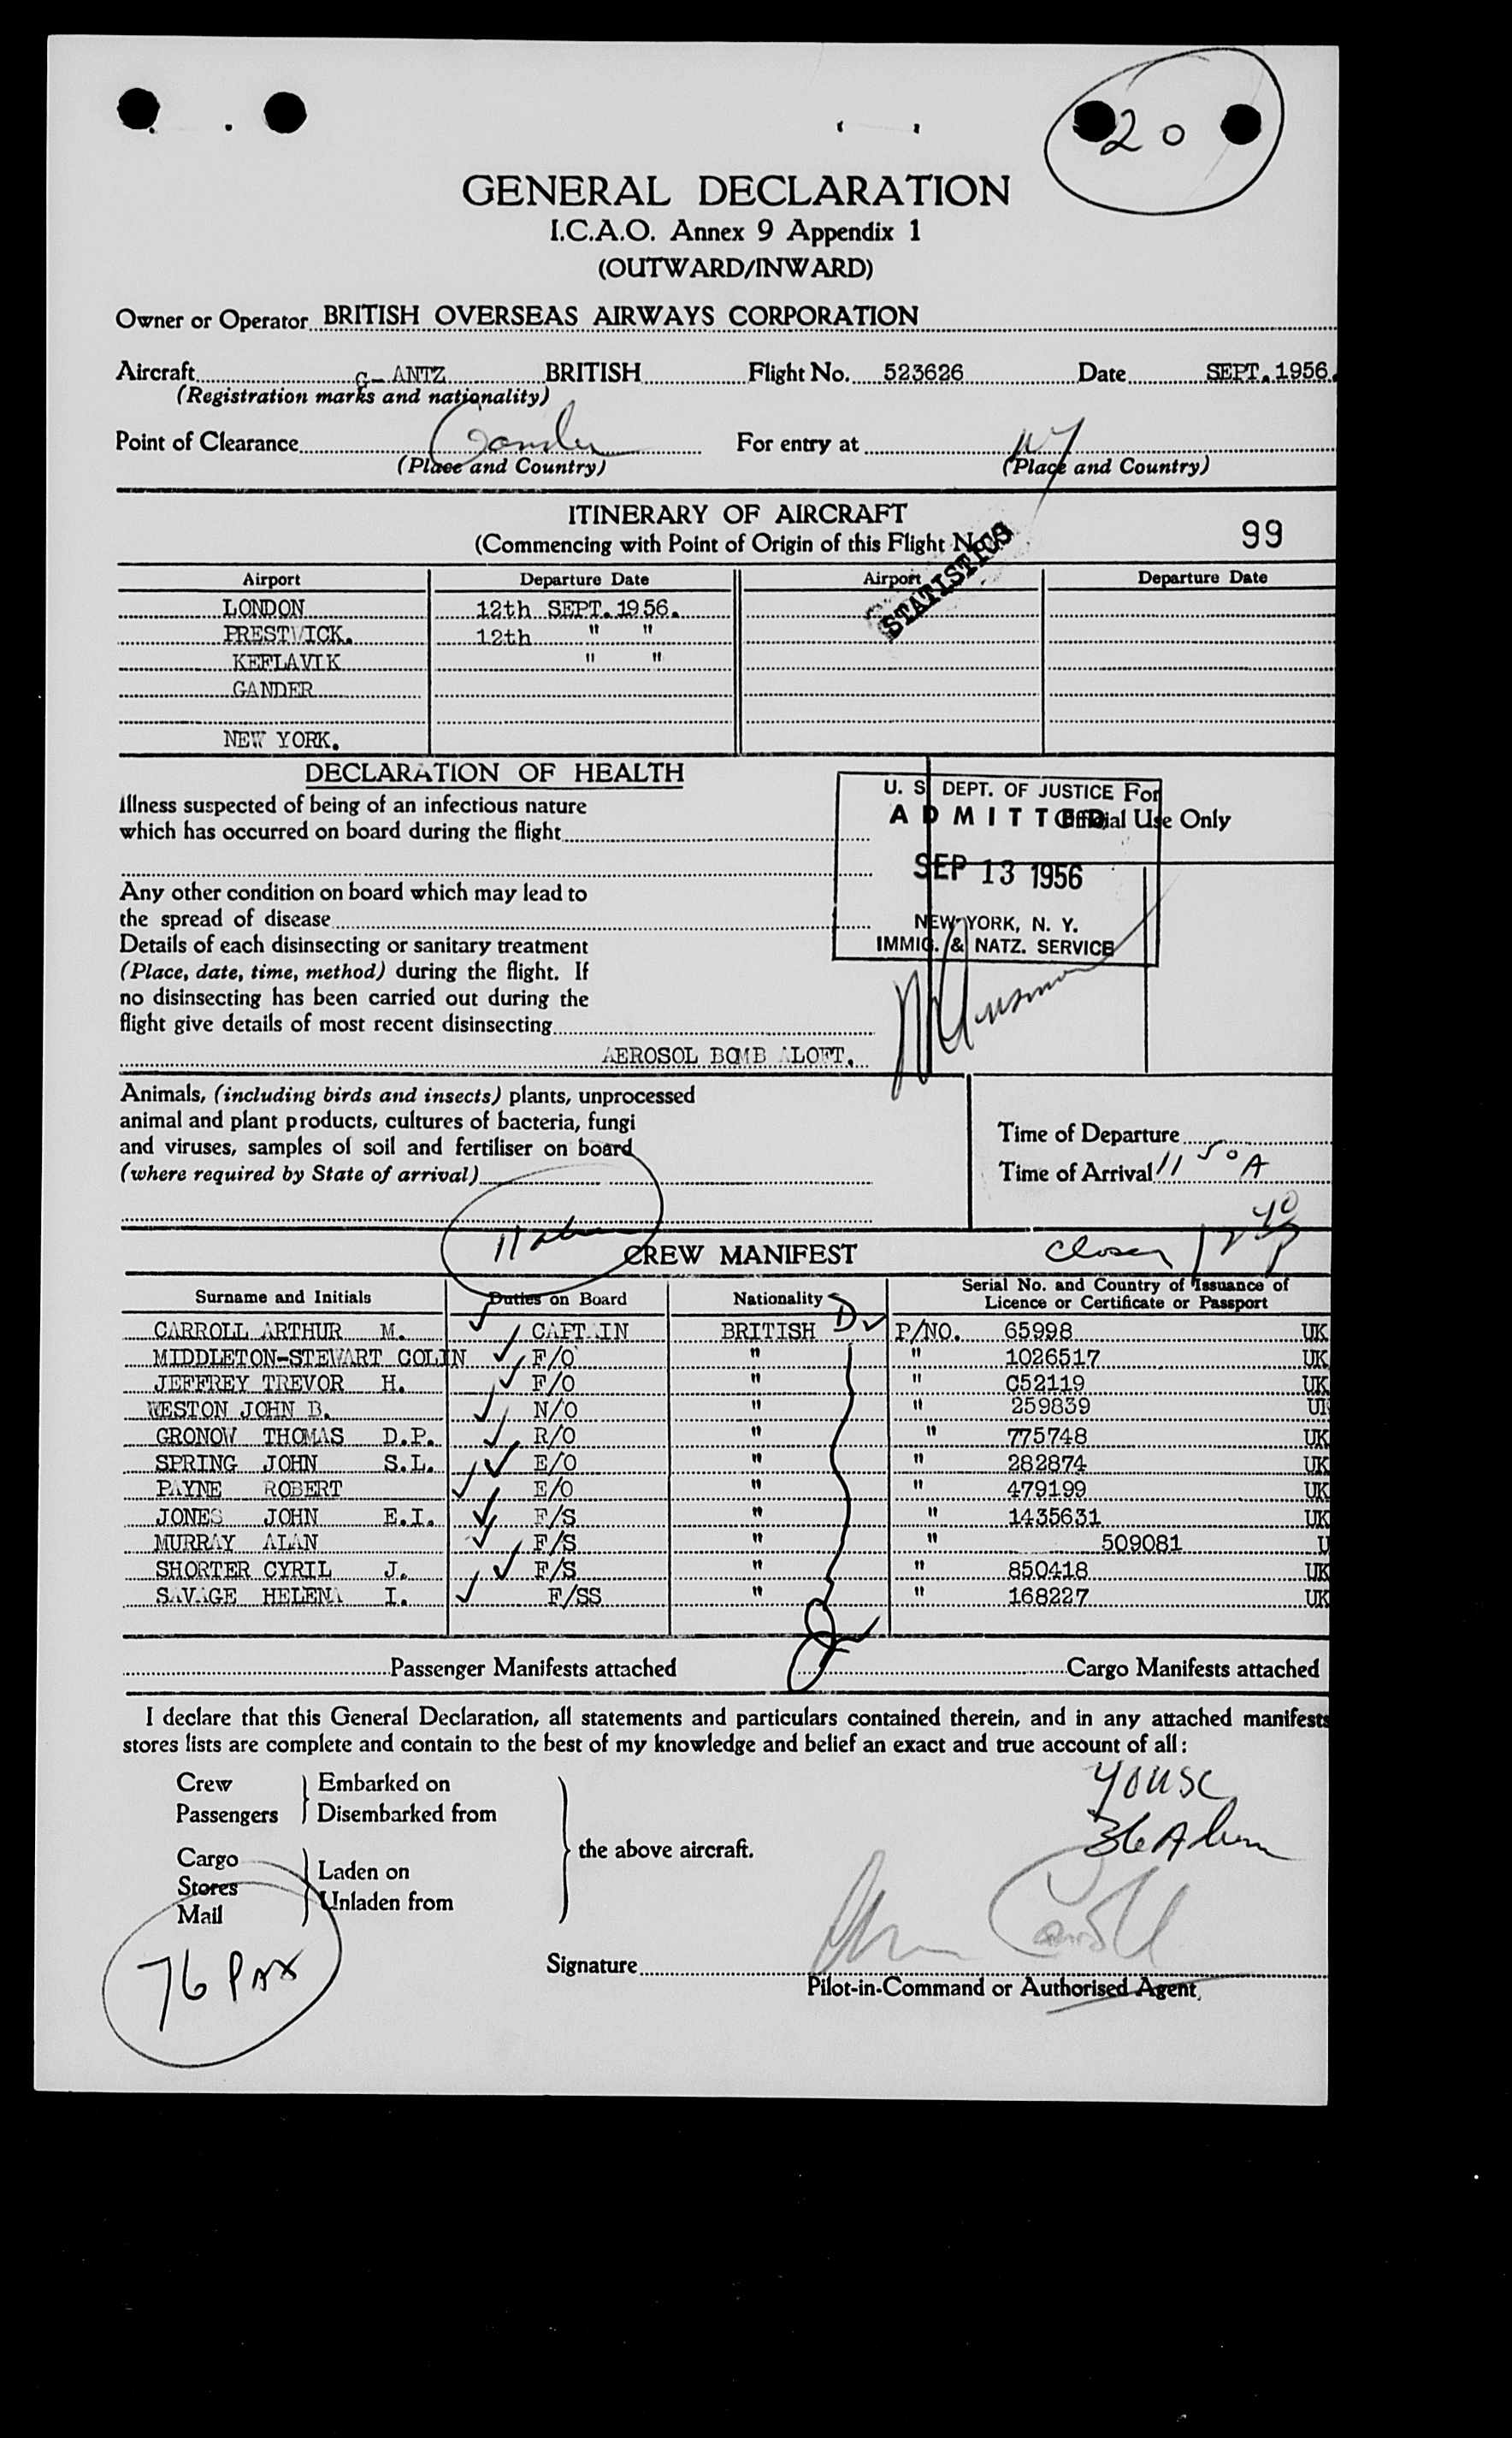 20
GENERAL DECLARATION
I.C.A.O. Annex 9 Appendix 1
(OUTWARD/INWARD)
Owner or Operator BRITISH OVERSEAS AIRWAYS CORPORATION
Aircraft G-ANTZ BRITISH Flight No. 523626 Date SEPT. 1956.
(Registration marks and nationality)
Point of Clearance Gander For entry at NY
(Place and Country) (Place and Country)
ITINERARY OF AIRCRAFT
(Commencing with Point of Origin of this Flight No.)
99
STATISTICS
Airport Departure Date Airport Departure Date
LONDON 12th SEPT. 1956.
PRESTWICK. 12th " "
KEFLAVIK " "
GANDER
NEW YORK.
DECLARATION OF HEALTH
Illness suspected of being of an infectious nature
which has occurred on board during the flight
Any other condition on board which may lead to
the spread of disease
Details of each disinsecting or sanitary treatment
(Place, date, time, method) during the flight. If
no disinsecting has been carried out during the
flight give details of most recent disinsecting
AEROSOL BOMB ALOFT.
For
Official Use Only
U. S. DEPT. OF JUSTICE
ADMITTED
SEP 13 1956
NEW YORK, N. Y.
IMMIG. & NATZ. SERVICE
Animals, (including birds and insects) plants, unprocessed
animal and plant products, cultures of bacteria, fungi
and viruses, samples of soil and fertiliser on board
(where required by State of arrival)
Time of Departure
Time of Arrival 11 50 A
CREW MANIFEST
Surname and Initials Duties on Board Nationality Serial No. and Country of Issuance of
Licence or Certificate or Passport
CARROLL ARTHUR M. CAPTAIN BRITISH P/NO. 65998 UK
MIDDLETON-STEWART COLIN F/O " " 1026517 UK
JEFFREY TREVOR H. F/O " " C52119 UK
WESTON JOHN B. N/O " " 259839 UK
GRONOW THOMAS D.P. R/O " " 775748 UK
SPRING JOHN S.L. E/O " " 282874 UK
PAYNE ROBERT E/O " " 479199 UK
JONES JOHN E.I. F/S " " 1435631 UK
MURRAY ALAN F/S " " 509081 U
SHORTER CYRIL J. F/S " " 850418 UK
SAVAGE HELENA I. F/SS " " 168227 UK
Passenger Manifests attached Cargo Manifests attached
I declare that this General Declaration, all statements and particulars contained therein, and in any attached manifests
stores lists are complete and contain to the best of my knowledge and belief an exact and true account of all:
Crew Embarked on
Passengers Disembarked from
Cargo
Stores
Mail
Laden on
Unladen from
the above aircraft.
40 USC
36 Alien
76 PAX
Signature
Pilot-in-Command or Authorised Agent.